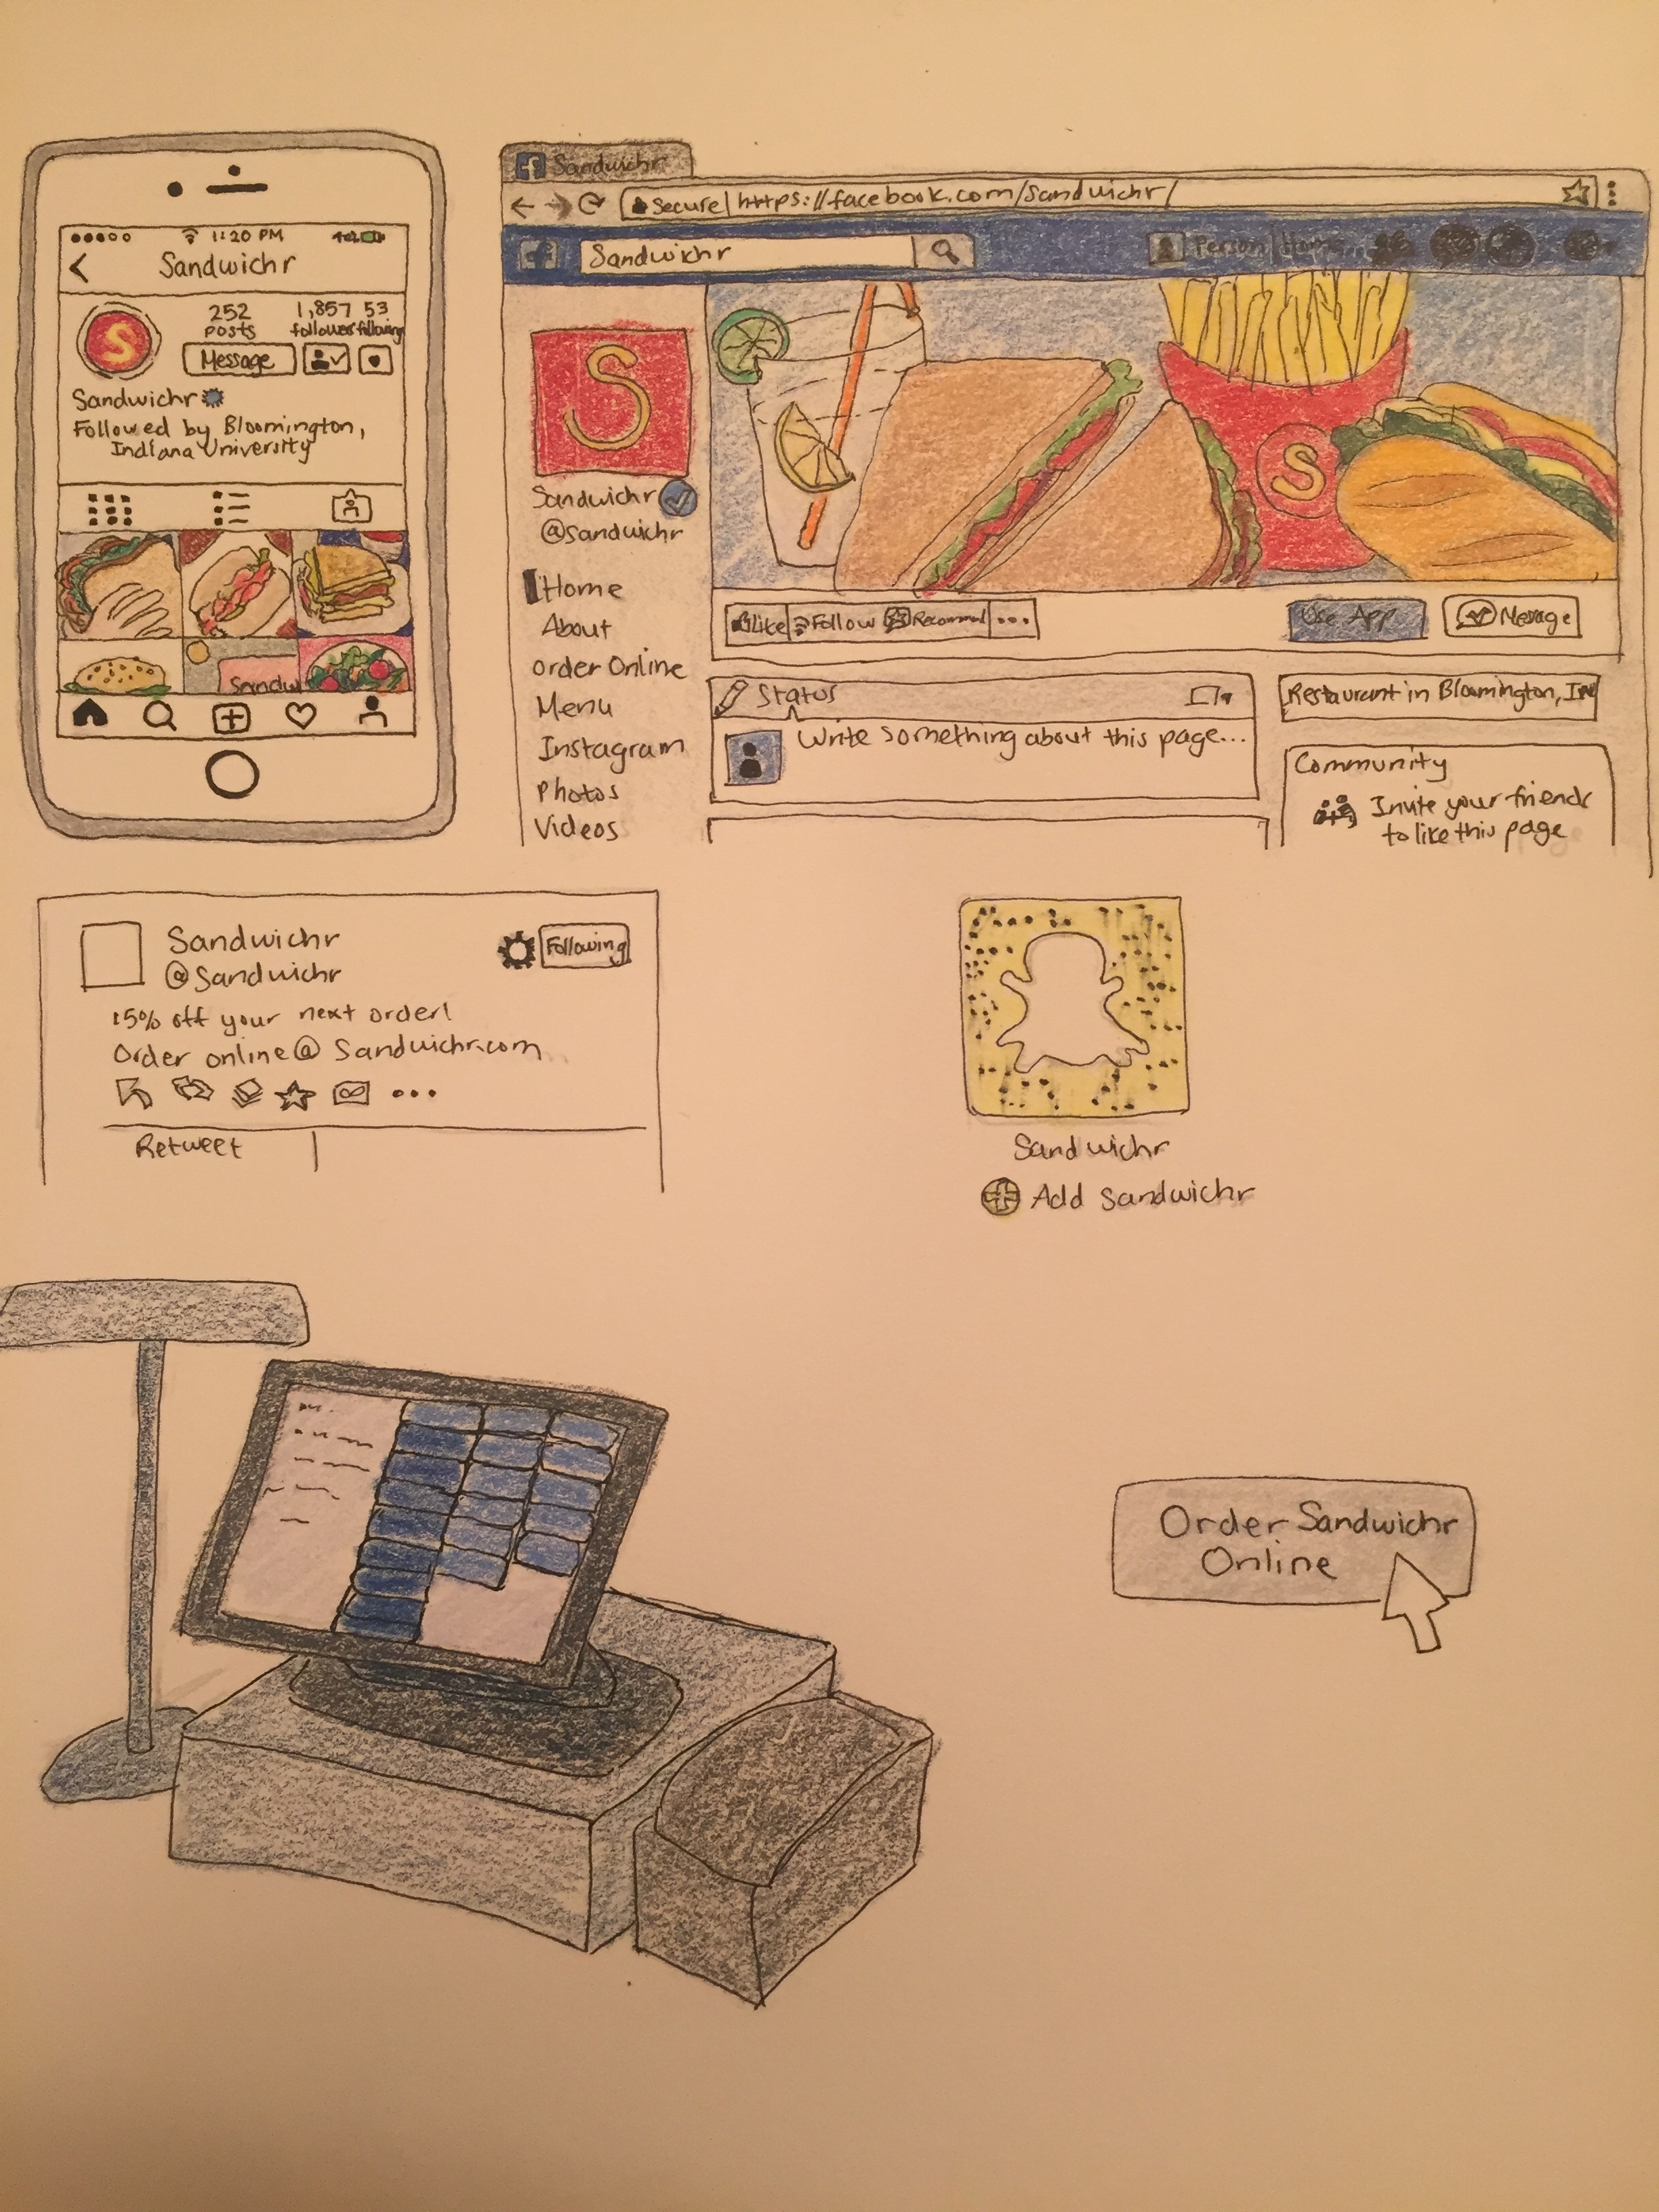 1:20 PM
Sandwichr
S
252
posts
1,857
followers
53
following
Message
Sandwichr
Followed by Bloomington,
Indiana University
Sandw
f Sandwichr
Secure | https://facebook.com/sandwichr/
f Sandwichr
Person | Home
S
Sandwichr
@sandwichr
Home
About
Order Online
Menu
Instagram
Photos
Videos
S
Like Follow Recommend ...
Use App
Message
Status
Write something about this page...
Restaurant in Bloomington, IN
Community
Invite your friends
to like this page
Sandwichr
@Sandwichr
Following
15% off your next order!
Order online@ Sandwichr.com
...
Retweet
Sandwichr
Add Sandwichr
Order Sandwichr
Online